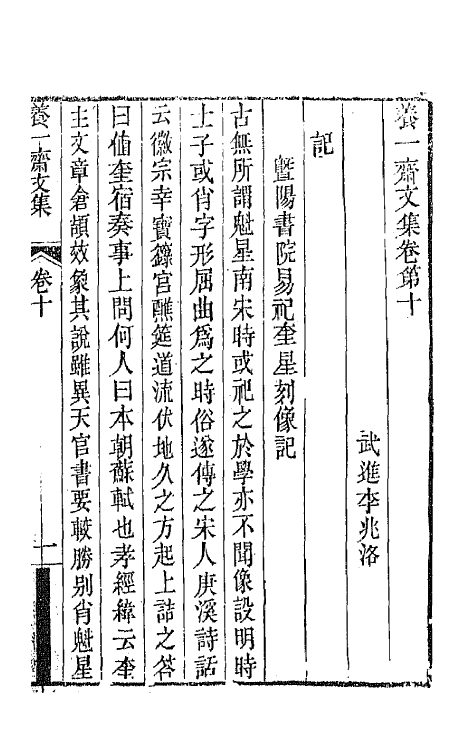 養一齋文集卷第十
武進李兆洛
記
暨陽書院易祀奎星刻像記
古無所謂魁星南宋時或祀之於學亦不聞像設明時
士子或肖字形屈曲爲之時俗遂傳之宋人庚溪詩話
云徽宗幸寶籙宫醮筵道流伏地久之方起上詰之答
曰值奎宿奏事上問何人曰本朝蘇軾也孝經緯云奎
主文章倉頡效象其說雖異天官書要較勝别肖魁星
養一齋文集
卷十
一